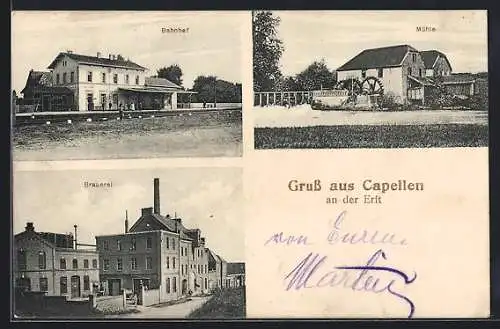 Bahnhof
Mühle
Brauerei
Gruß aus Capellen
an der Erft
von Eurem
Martin